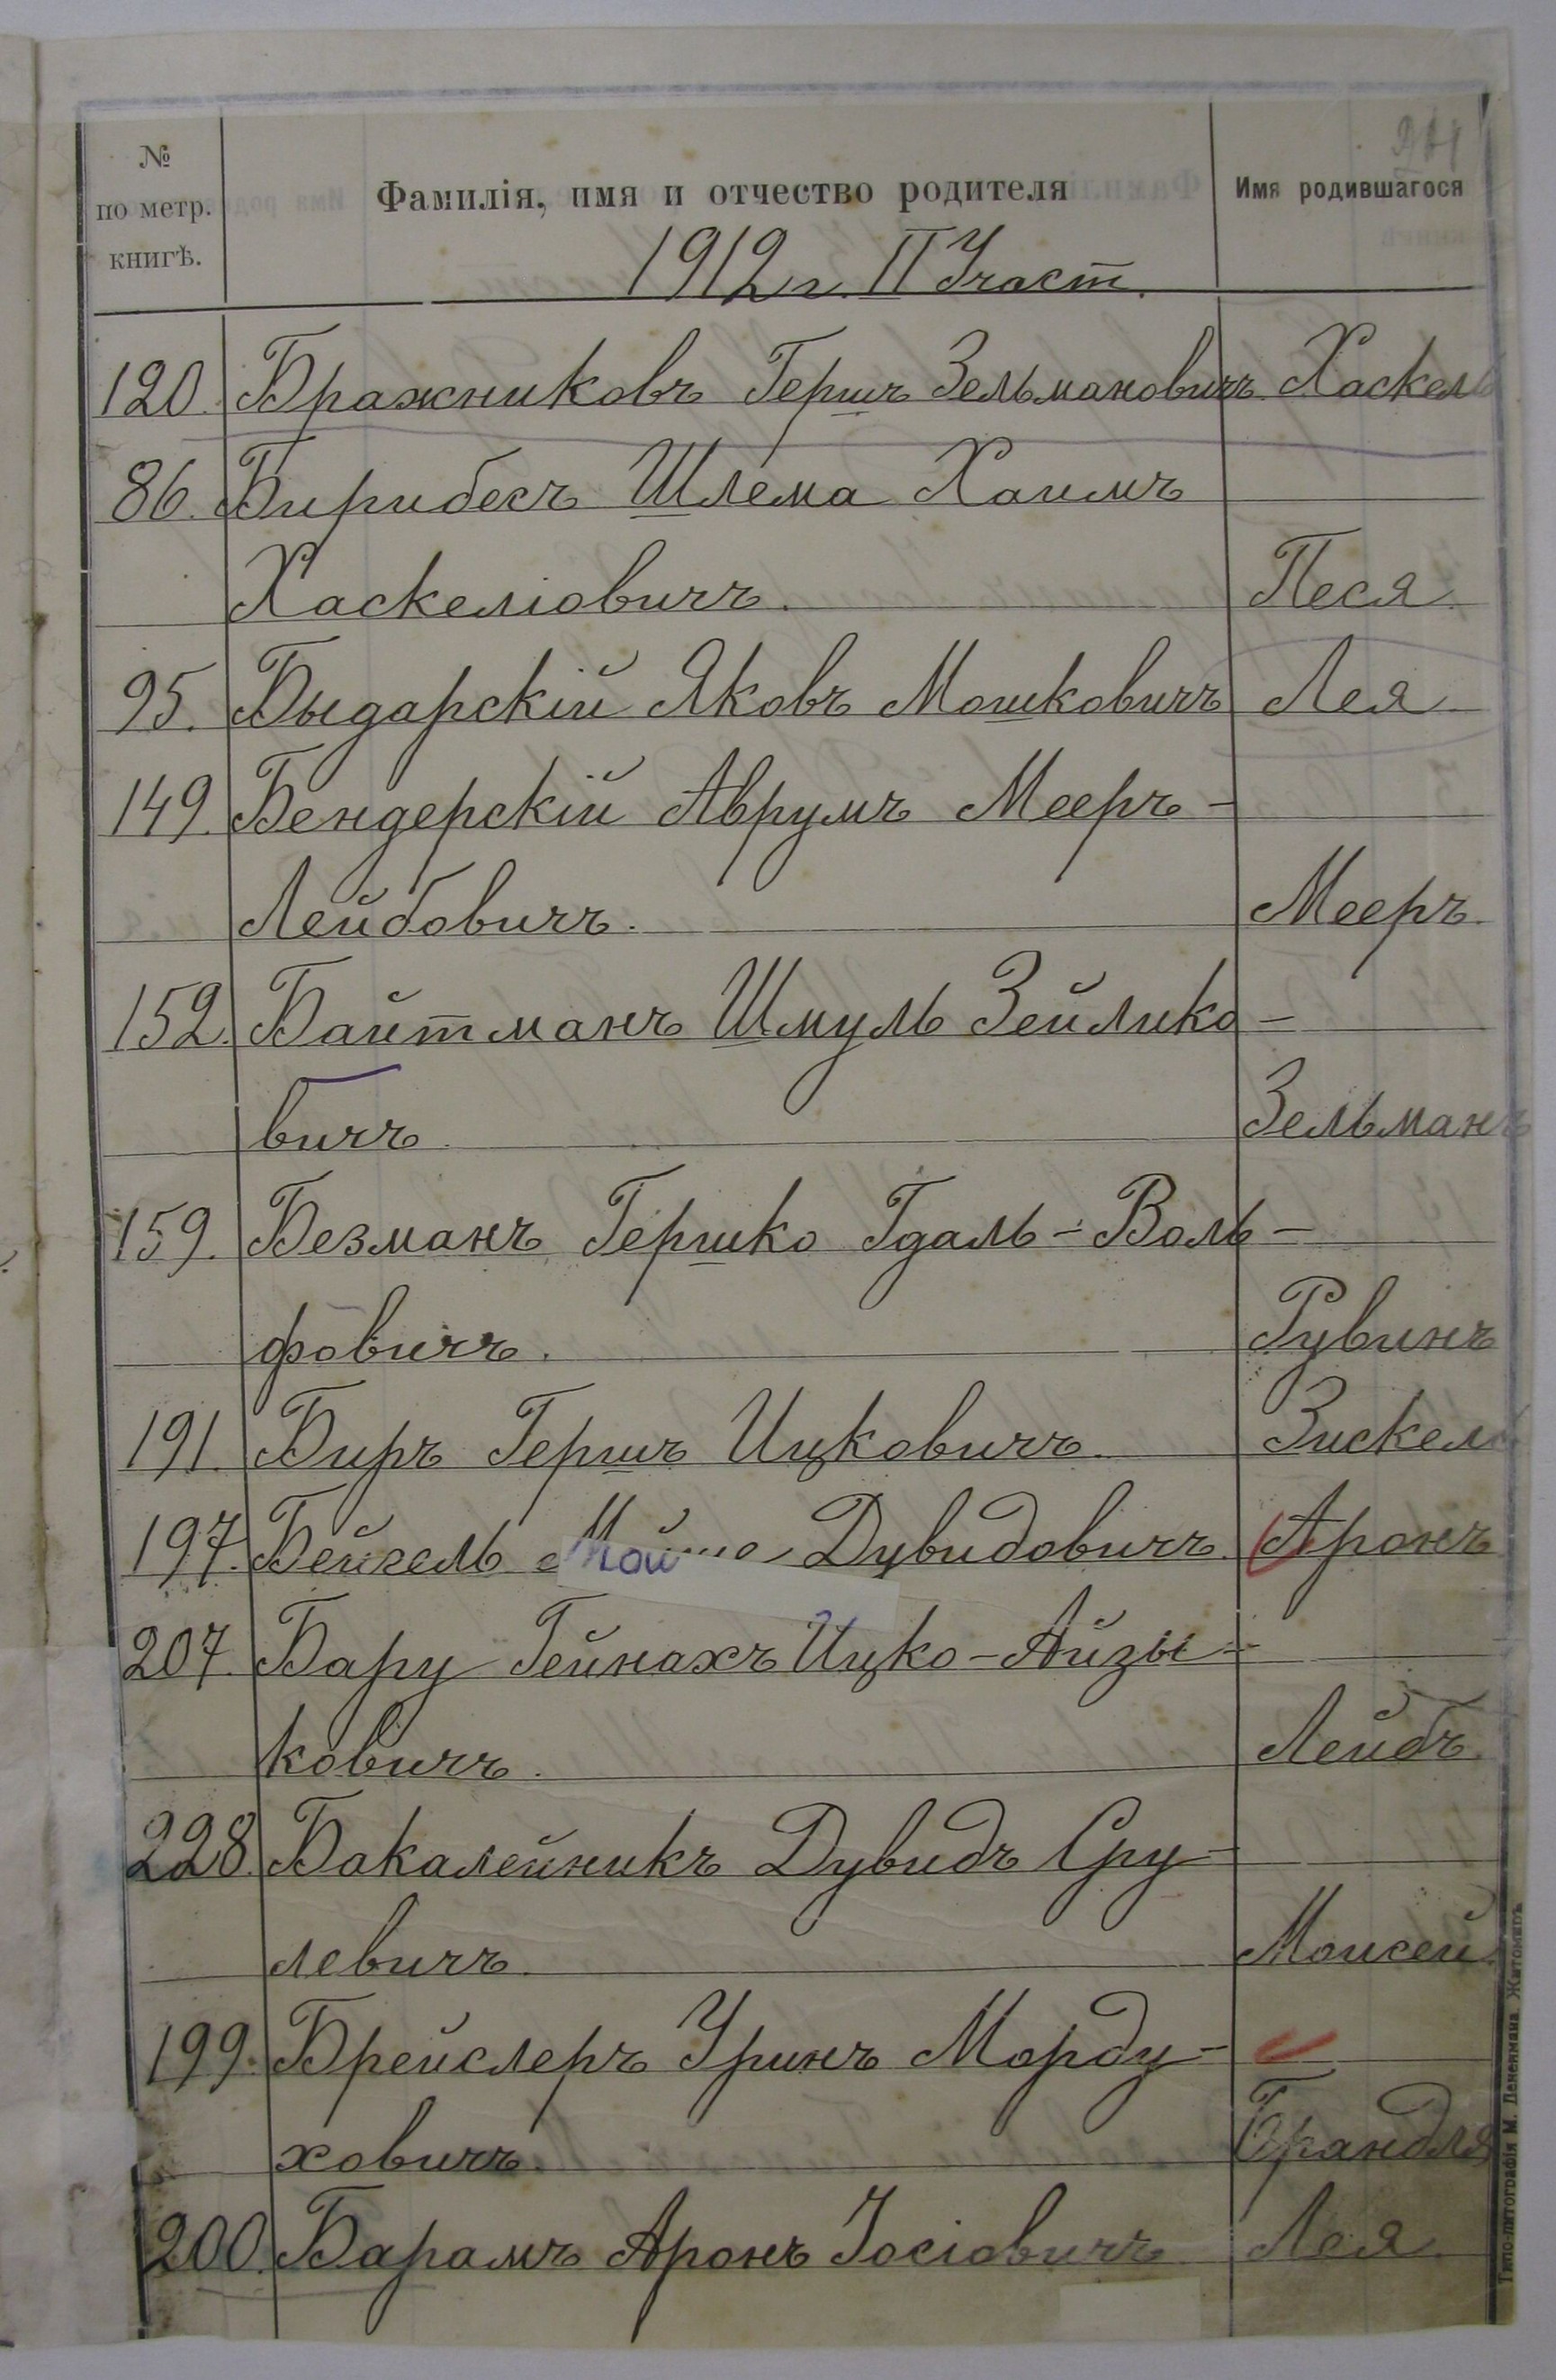 № по метр. книгѣ. Фамилія, имя и отчество родителя Имя родившагося
1912 г. II Участ.
120. Бражниковъ Гершъ Зельмановичъ Хаскель
86. Бирибесъ Шлема Хаимъ
Хаскеліовичъ. Песя
95. Быдарскій Яковъ Мошковичъ Лея
149. Бендерскій Аврумъ Мееръ-
Лейбовичъ. Мееръ.
152. Байтманъ Шмуль Зейлико-
вичъ Зельманъ
159. Безманъ Гершко Гдаль-Воль-
фовичъ. Рувинъ
191. Биръ Гершъ Ицковичъ. Зискель
197. Бейгель Дувидовичъ. Аронъ
207. Бару Гейнахъ Ицко-Айзы-
ковичъ. Лейбъ.
228. Бакалейникъ Дувидъ Сру-
левичъ. Моисей.
199. Брейслеръ Уринъ Морду-
ховичъ. Брандля
200. Барамъ Аронъ Іосіовичъ Лея.
Типо-литографія М. Дененмана. Житомиръ